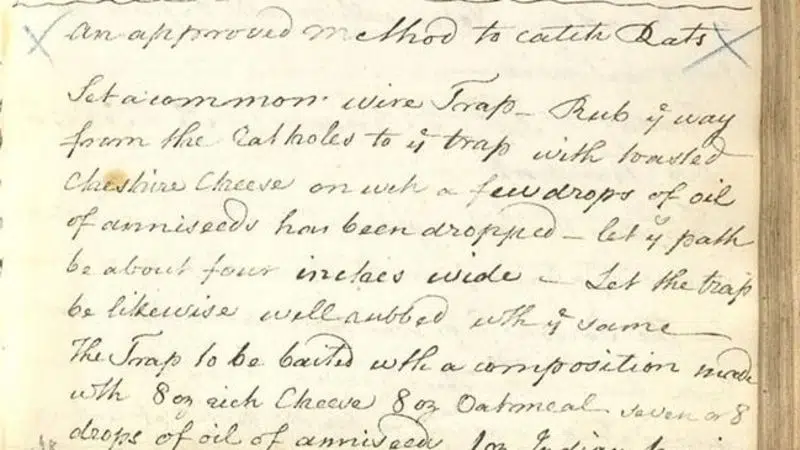 An approved Method to catch Rats
Set a common wire Trap - Rub ye way
from the Rat holes to ye trap with toasted
Cheshire Cheese on wch a few drops of oil
of anniseeds has been dropped - let ye path
be about four inches wide - Let the trap
be likewise well rubbed wth ye same
The Trap to be baited wth a composition made
wth 8 oz rich Cheese 8 oz Oatmeal seven or 8
drops of oil of anniseed 1 oz Indian